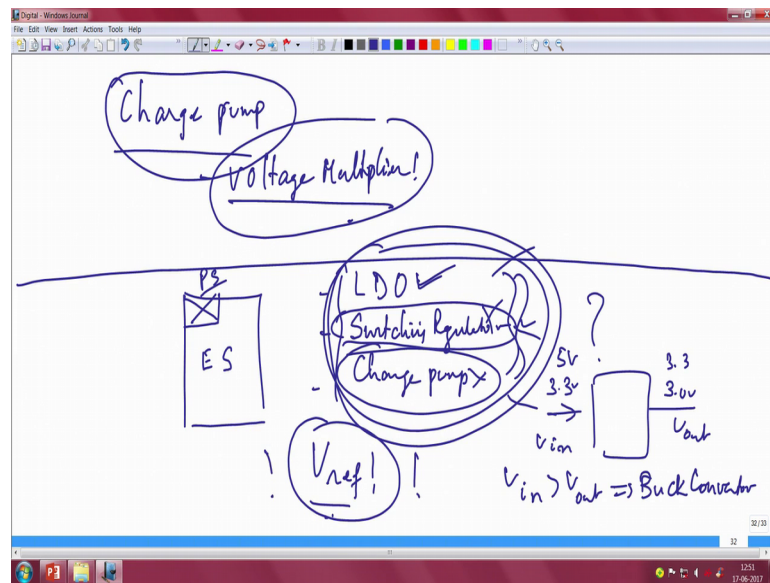 Digital - Windows Journal
File Edit View Insert Actions Tools Help
Charge pump
Voltage Multiplier!
PS
ES
- LDO ✓
- Switching Regulator
- Charge pump x
Vref!
! !
?
5V
3.3v
Vin
3.3
3.0v
Vout
Vin > Vout => Buck Convertor
32/33
32
12:51
17-06-2017